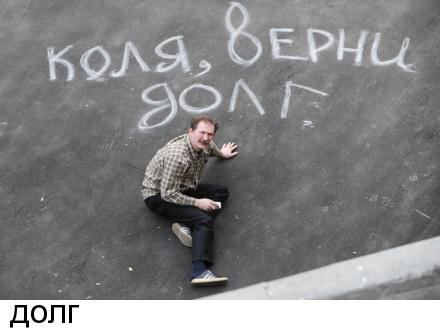 коля, верни
долг
долг